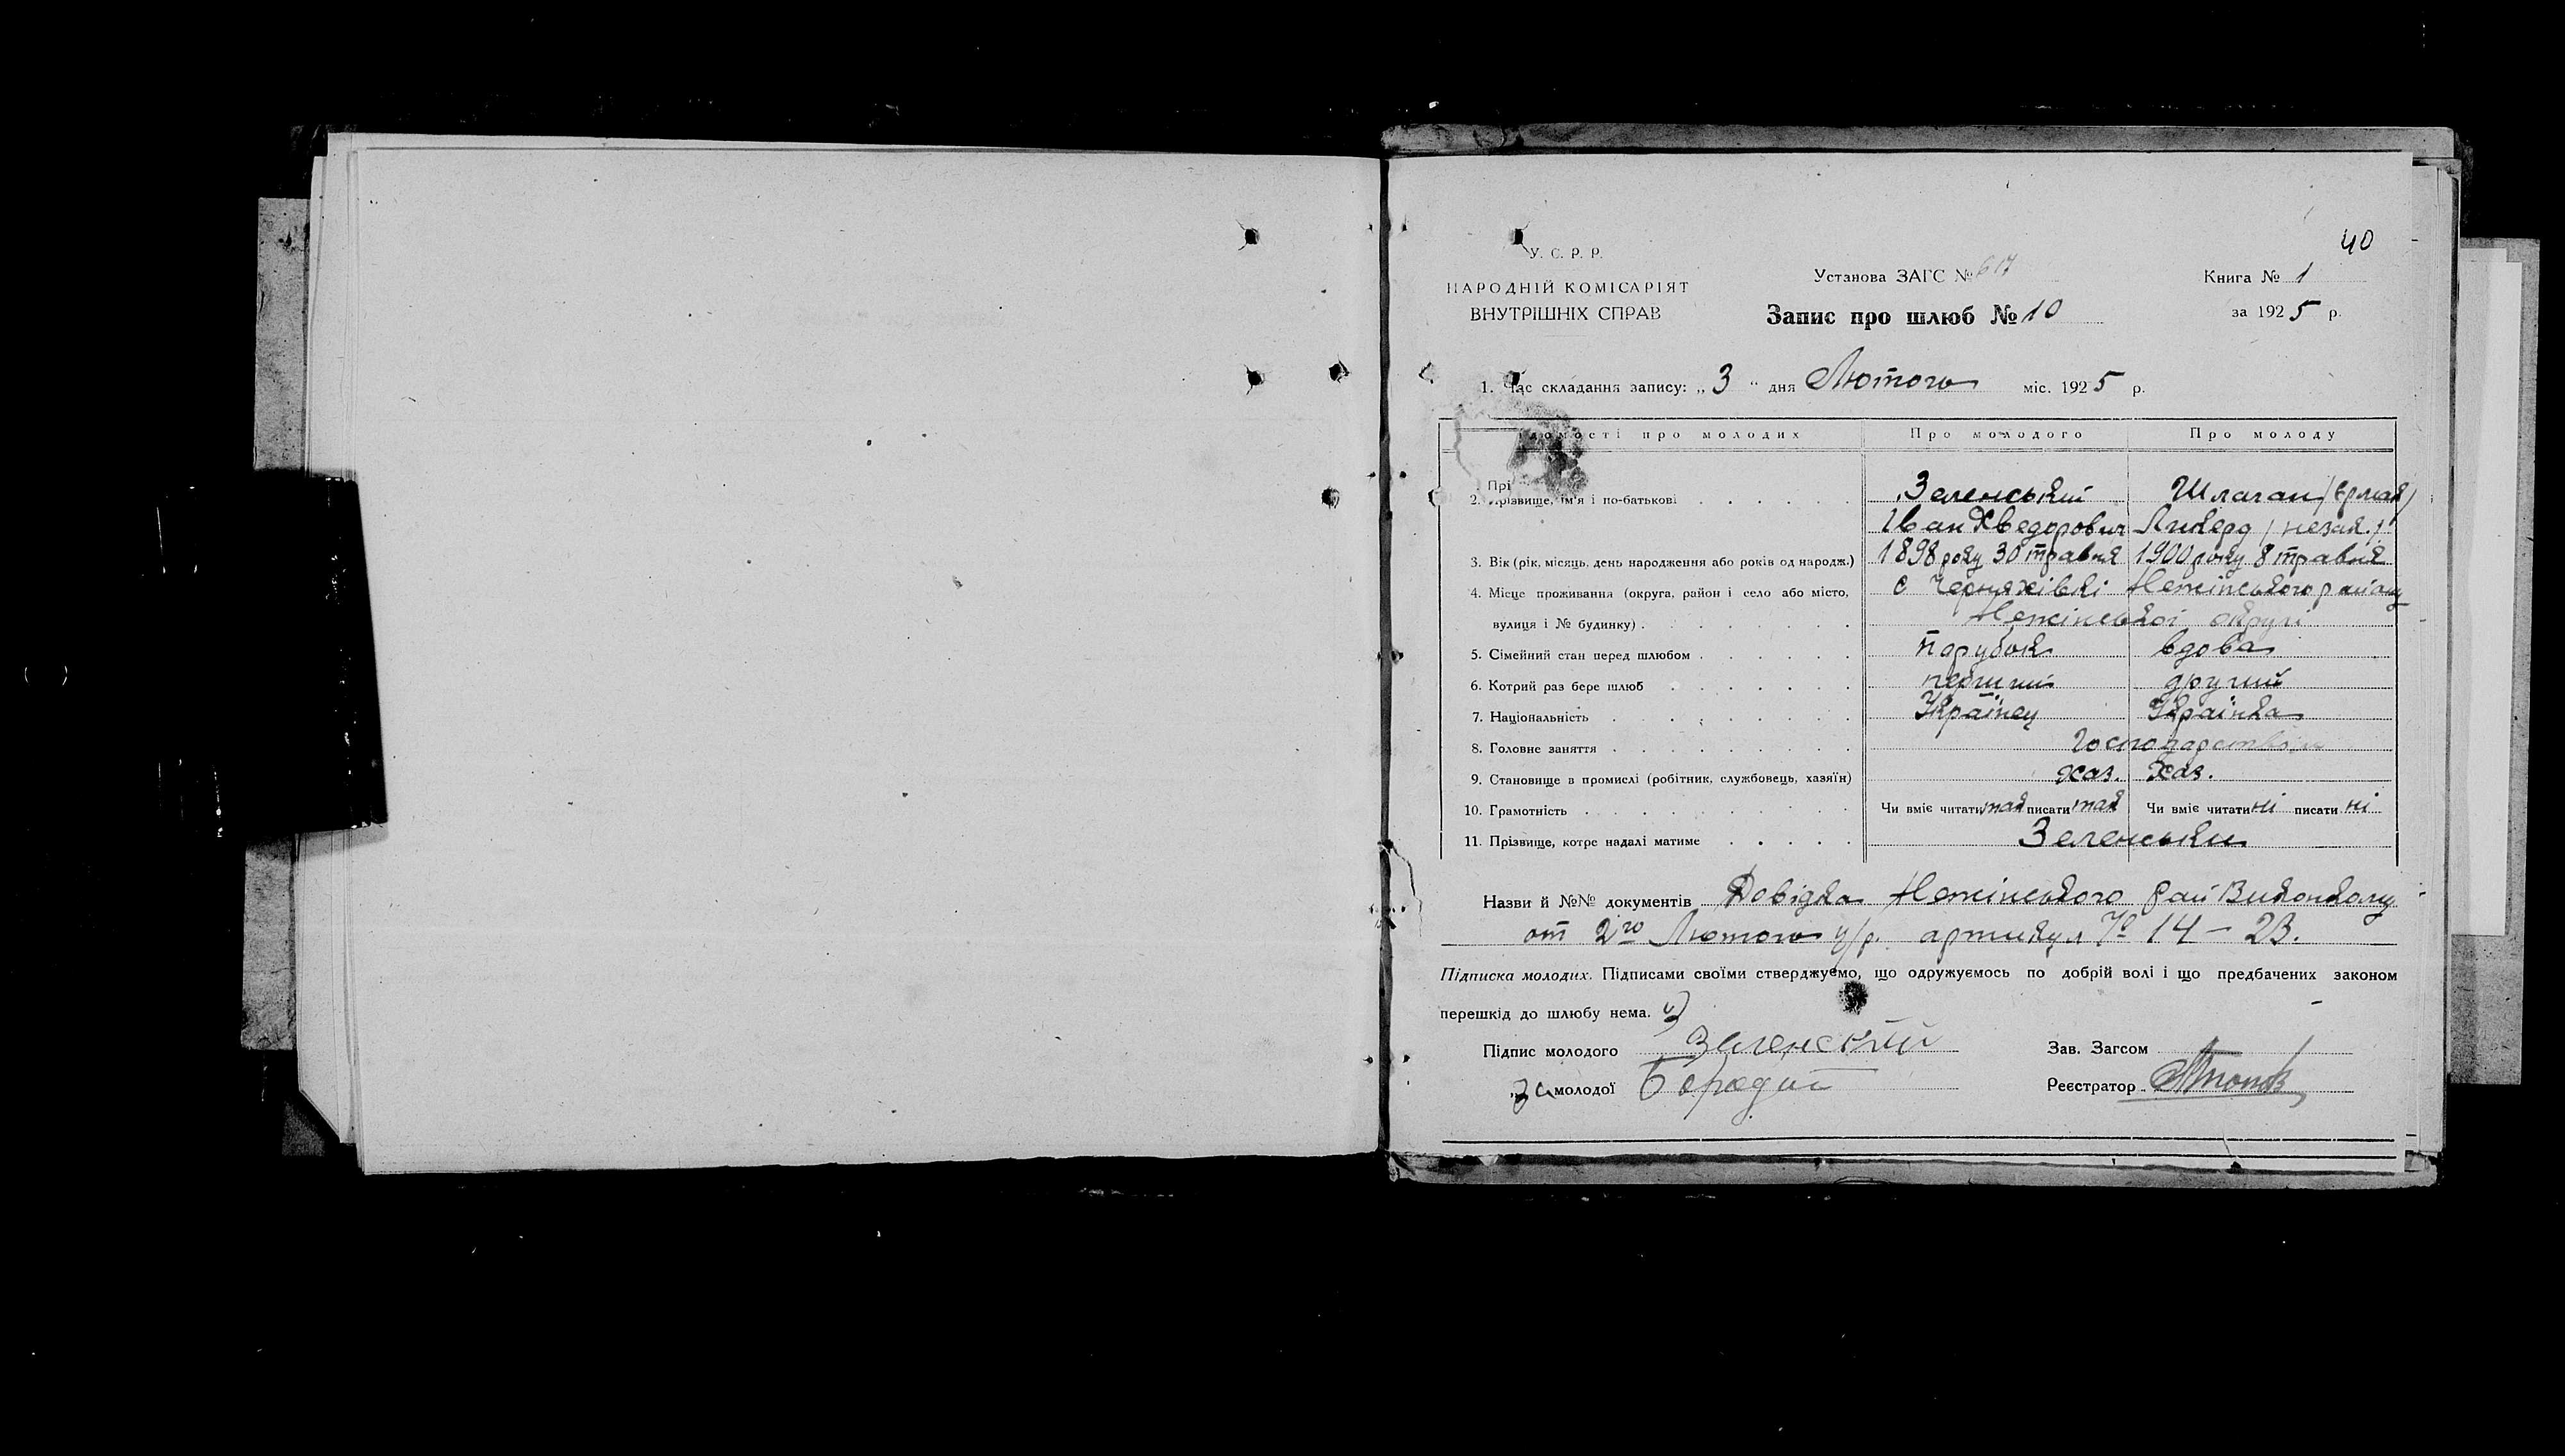 40
У. С. Р. Р.
НАРОДНІЙ КОМІСАРІЯТ
ВНУТРІШНІХ СПРАВ
Установа ЗАГС № 617
Запис про шлюб № 10
Книга № 1
за 1925 р.
1. Час складання запису: „3“ дня Лютого міс. 1925 р.
домості про молодих Про молодого Про молоду
Прі
2. Прізвище, ім'я і по-батькові Зеленський Шлаган
Іван Хведорович
3. Вік (рік, місяць, день народження або років од народж.) 1898 року 30 травня 1900 року 8 травня
4. Місце проживання (округа, район і село або місто, с Черняхівкі Неженського району
вулиця і № будинку) Неженської округи
5. Сімейний стан перед шлюбом парубок вдова
6. Котрий раз бере шлюб первий другий
7. Національність Українец Українка
8. Головне заняття Господарством
9. Становище в промислі (робітник, службовець, хазяїн) хаз. хаз.
10. Грамотність Чи вміє читати так писати так Чи вміє читати ні писати ні
11. Прізвище, котре надалі матиме Зеленськи
Назви й №№ документів Довідка Неженського рай Виконкому
от 2го Лютого ц/р. артикул № 14 — 23.
Підписка молодих. Підписами своїми стверджуємо, що одружуємось по добрій волі і що предбачених законом
перешкід до шлюбу нема.
Підпис молодого Зеленский
Зав. Загсом
за молодої
Реєстратор